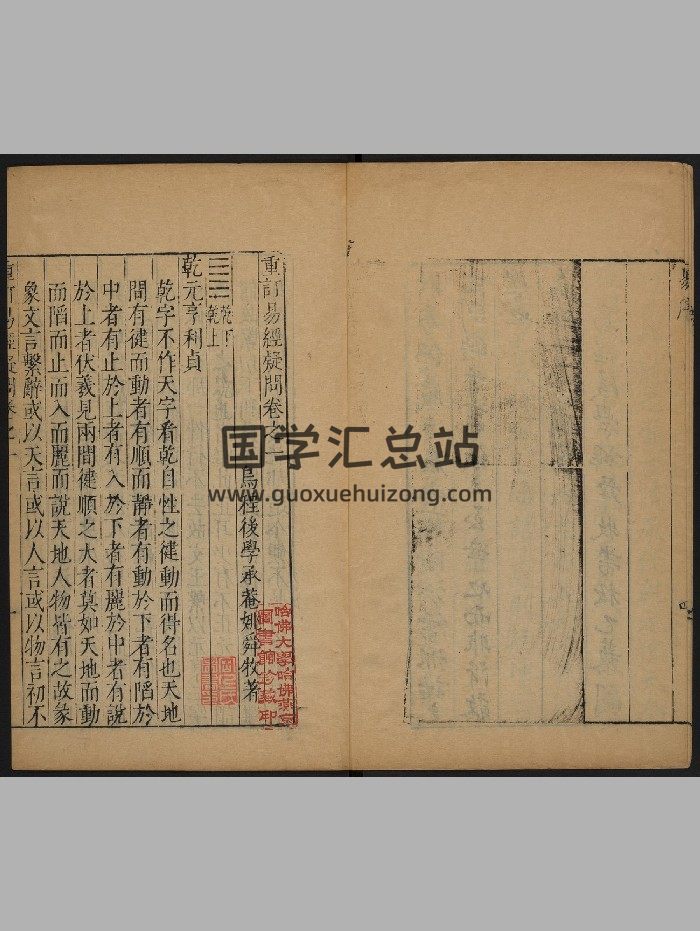 重訂易經疑問卷之一
烏程後學承菴姚舜牧著
乾下
乾上
乾元亨利貞
乾字不作天字看乾自性之健動而得名也天地
間有健而動者有順而靜者有動於下者有陷於
中者有止於上者有入於下者有麗於中者有說
於上者伏羲見兩間健順之大者莫如天地而動
而陷而止而入而麗而說天地人物皆有之故彖
象文言繫辭或以天言或以人言或以物言初不
哈佛大學哈佛燕京
圖書館珍藏印
国学汇总站
www.guoxuehuizong.com